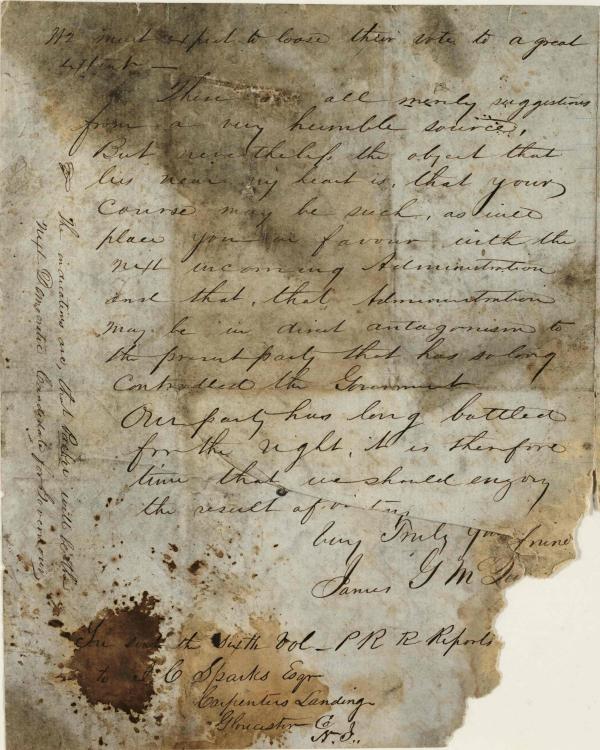 We must expect to loose their vote to a great
extent —
These are all merely suggestions
from a very humble source,
But nevertheless the object that
lies near my heart is, that your
course may be such, as will
place you in favour with the
next incoming Administration
and that, that Administration
may be in direct antagonism to
the present party that has so long
controlled the Government
Our party has long battled
for the right, it is therefore
time that we should enjoy
the result of victory
Very Truly your friend
James G Mc
send the Sixth Vol — P R R Reports
to C Sparks Esqr
Carpenters Landing
Gloucester Co
N. J.
The indications are, that Parker will be the
next Democratic Candidate for Governor